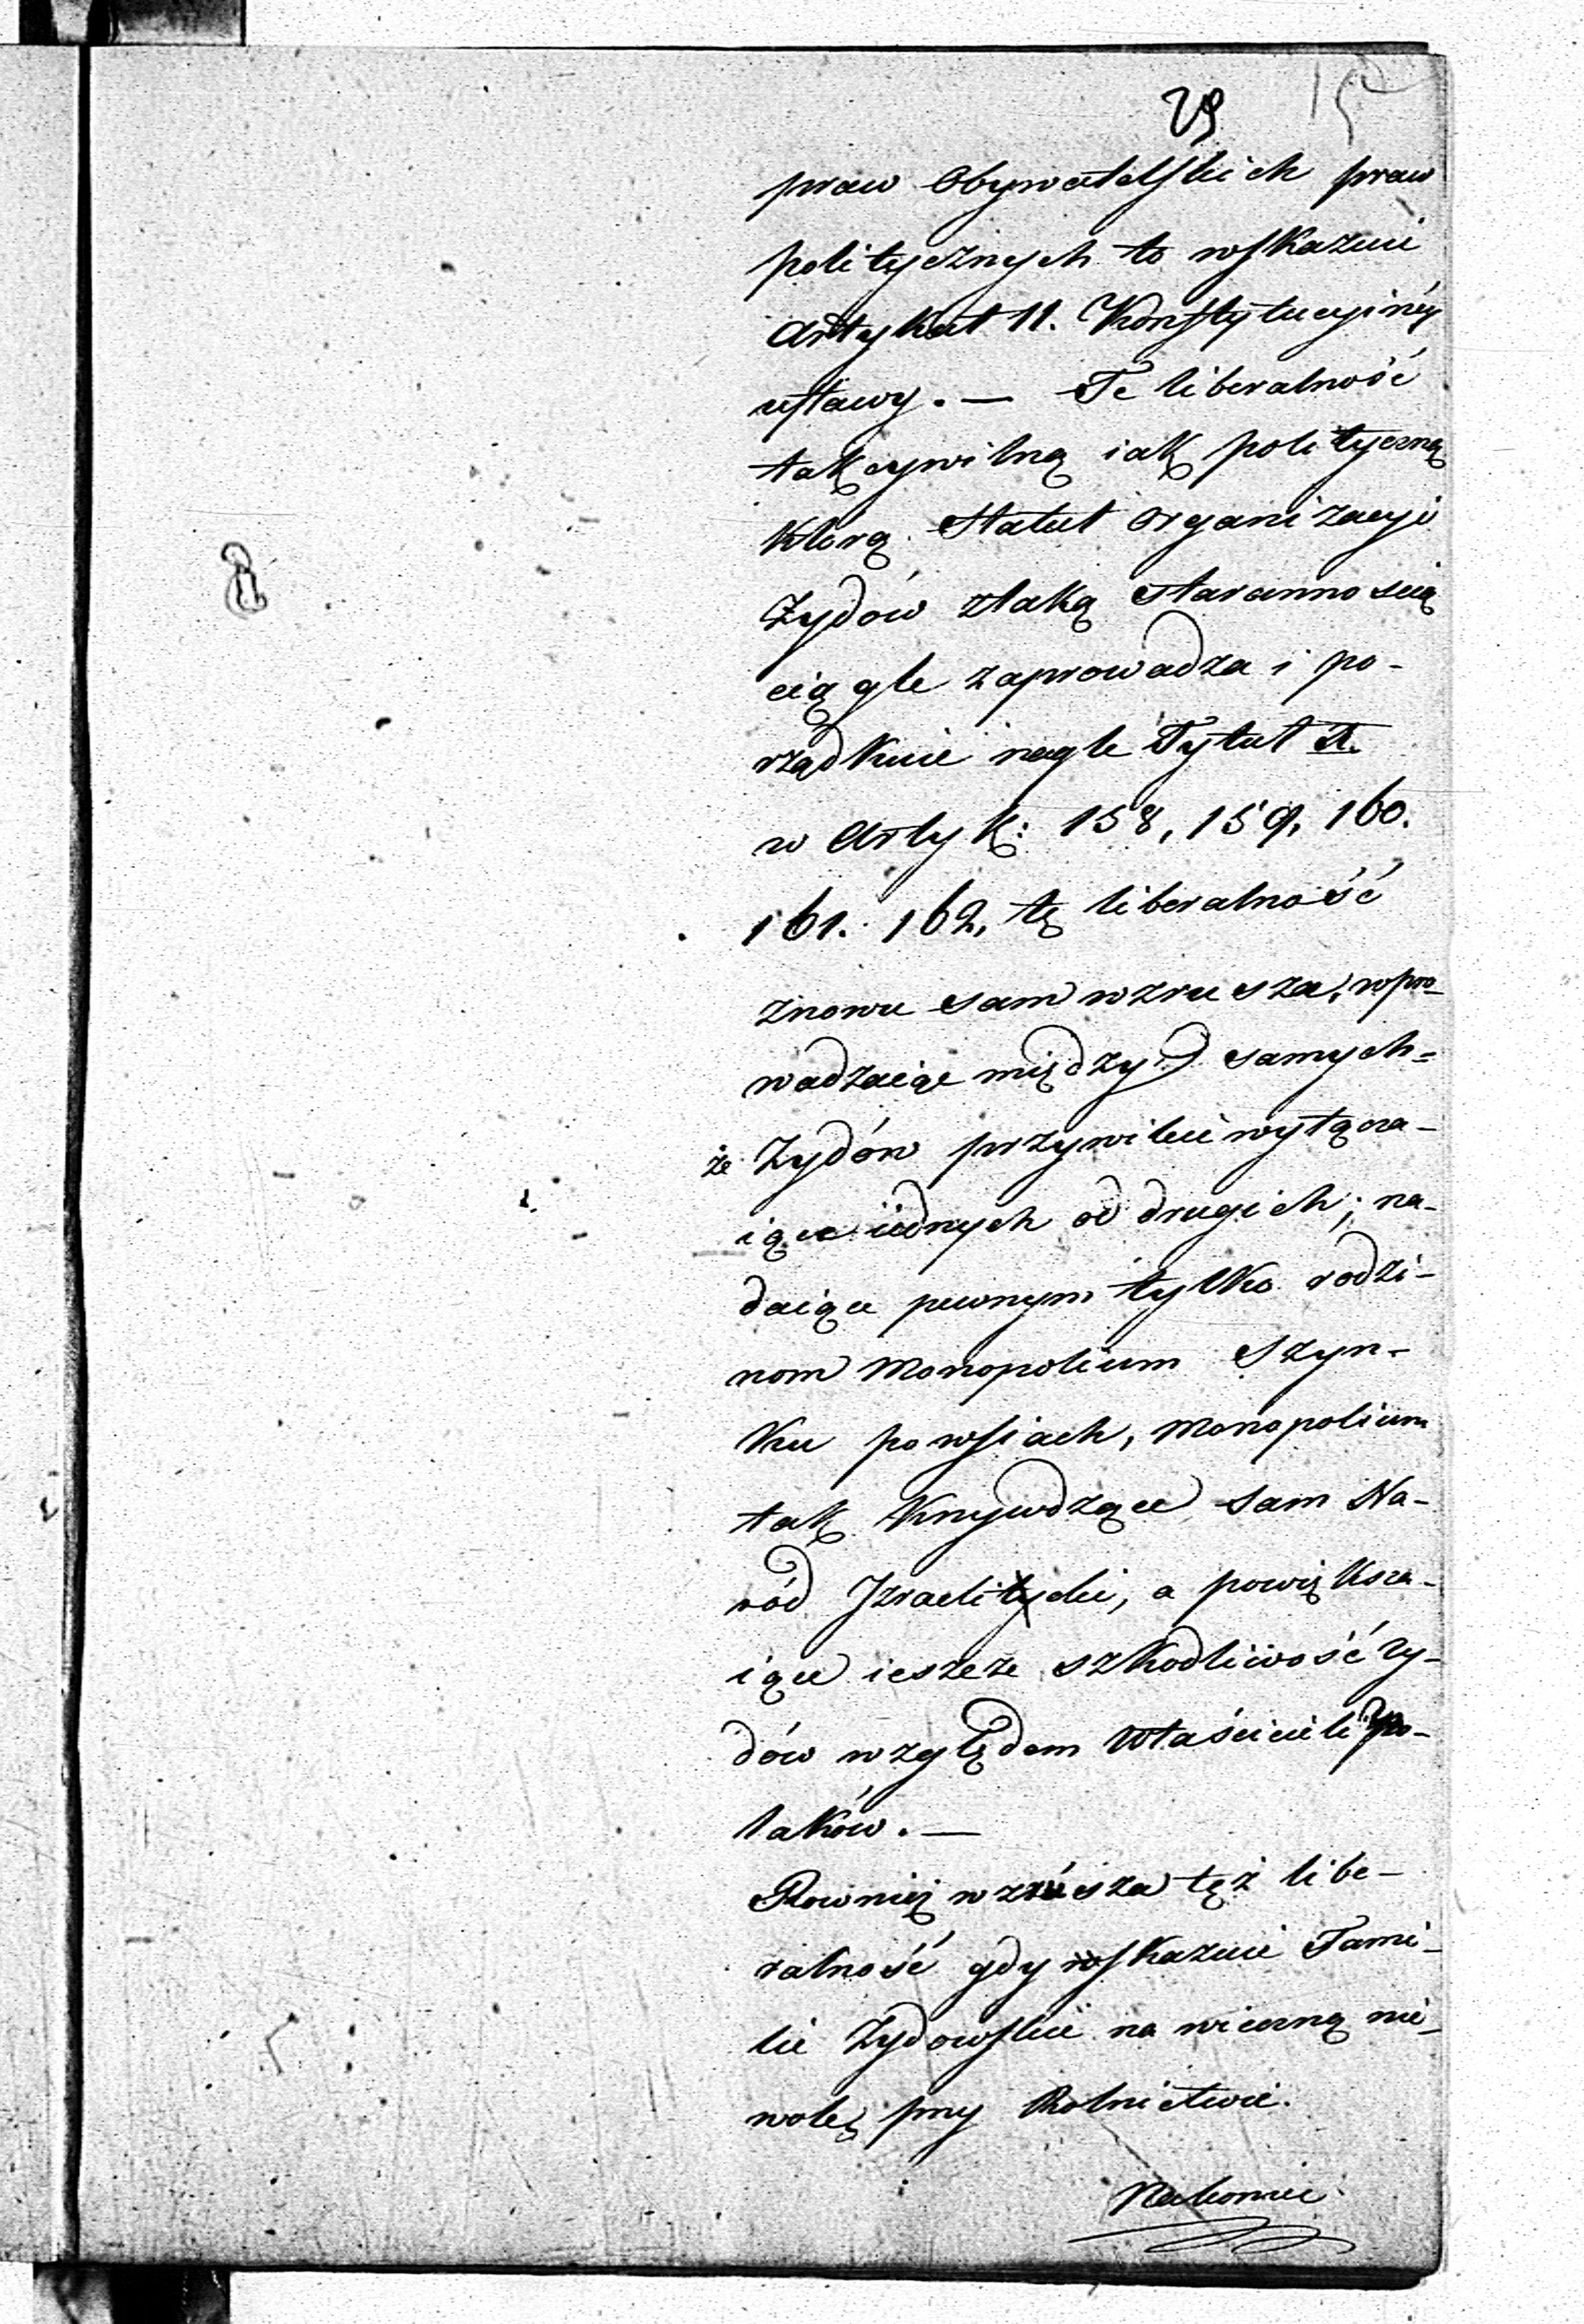 29
praw Obywatelskich praw
politycznych to wskazuie
Artykuł 11. Konstytucyinéy
ustawy. — Te liberalność
tak cywilną iak polityczną
którą Statut organizacyi
Żydów z taką starannoscią
ciągle zaprowadza i po-
rządkuie nagle Tytuł X.
w Artyk: 158, 159, 160.
161. 162, tę liberalność
znowu sam wzrusza, wpro-
wadzaiąc między samych-
że Żydów przywileie wyłącza-
iące iednych od drugich; na-
daiące pewnym tylko rodzi-
nom Monopolium Szyn-
ku po wsiach, Monopolium
tak krzywdzące sam Na-
ród Izraelicki, a powiększa-
iące ieszcze szkodliwość ży-
dów względem Właścicieli Po-
laków. —
Rownież wzrusza tęż libe-
ralność gdy wskazuie Fami-
lie Żydowskie na wieczną nie-
wolę przy Rolnictwie.